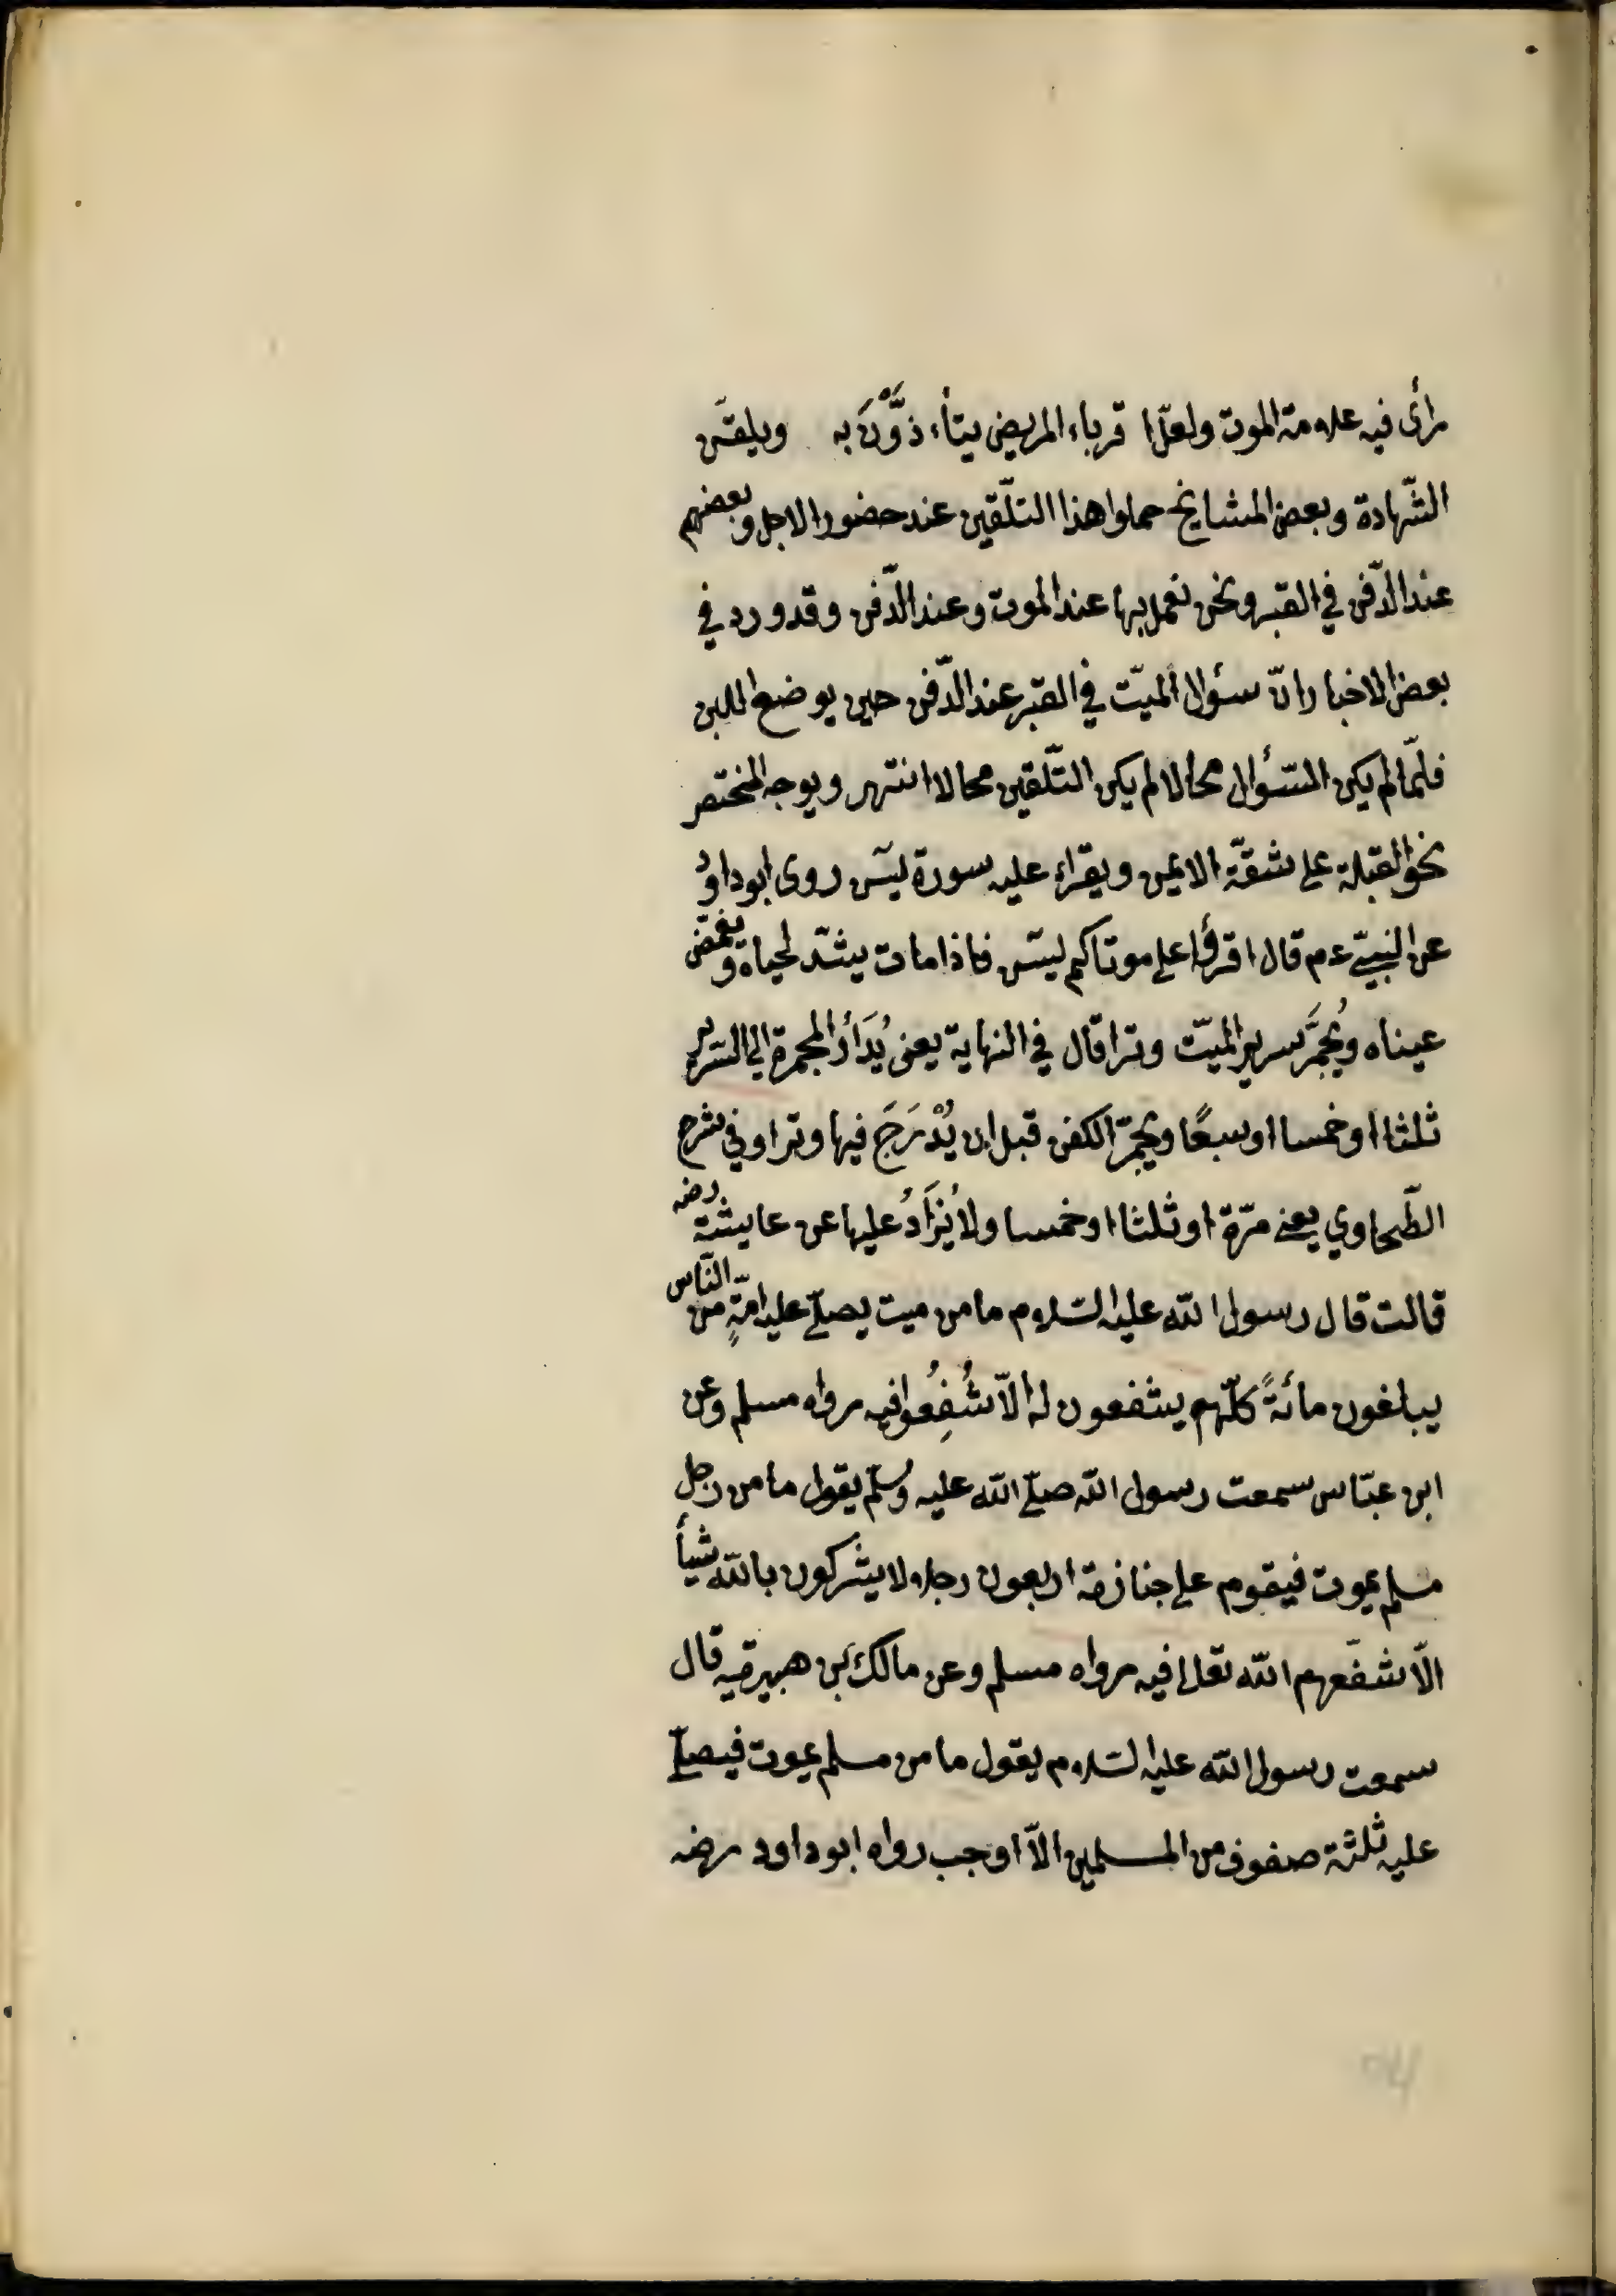 رأى فيه علامة الموت ولعلّ اقرباء المريض يتأذَّوْنَ به ويلقّن
الشّهادة وبعض المشايخ حملوا هذا التلّقين عند حضور الاجل وبعضهم
عند الدّفن في القبر ونحن نعمل بها عند الموت وعند الدّفن وقد ورد في
بعض الاخبار انّ سؤال الميّت في القبر عند الدّفن حين يوضع اللبن
فلمّا لم يكن السّؤال محالا لم يكن التلّقين محالا انتهى ويوجه المختصر
نحو القبلة على شقّه الايمن ويقراء عليه سورة ليسۤ روى ابو داود
عن النبيّ عم قال اقرؤا على موتاكم ليسۤ فاذا مات يشدّ لحياه ويغمض
عيناه ويُجمَّر سرير الميّت وترا قال في النهاية يعنى يُدَارُ المجمرة الي السّرير
ثلثا او خمسا او سبعًا ويجمّر الكفن قبل ان يُدْرَجَ فيها وترا وفي شرح
الطّحاوي يعني مرّة او ثلثا او خمسا ولا يُزَادُ عليها عن عايشة رضه
قالت قال رسول الله عليه السّلام ما من ميت يصلّي عليه امّةٍ من النّاس
يبلغون مائةً كلّهم يشفعون له الاّ شُفِعُوا فيه رواه مسلم وعن
ابن عبّاس سمعت رسول الله صلّى الله عليه وسلّم يقول ما من رجل
مسلم يموت فيقوم على جنازته اربعون رجلا لا يشركون بالله شيأ
الاّ شفّعهم الله تعالى فيه رواه مسلم وعن مالك بن هبيرة قال
سمعت رسول الله عليه السّلام يقول ما من مسلم يموت فيصلّي
عليه ثلثة صفوف من المسلمين الاّ اوجب رواه ابو داود رضه